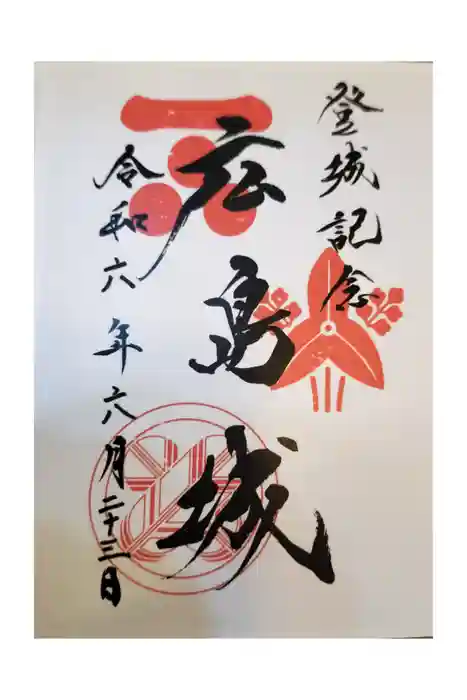 登城記念
広島城
令和六年六月二十三日